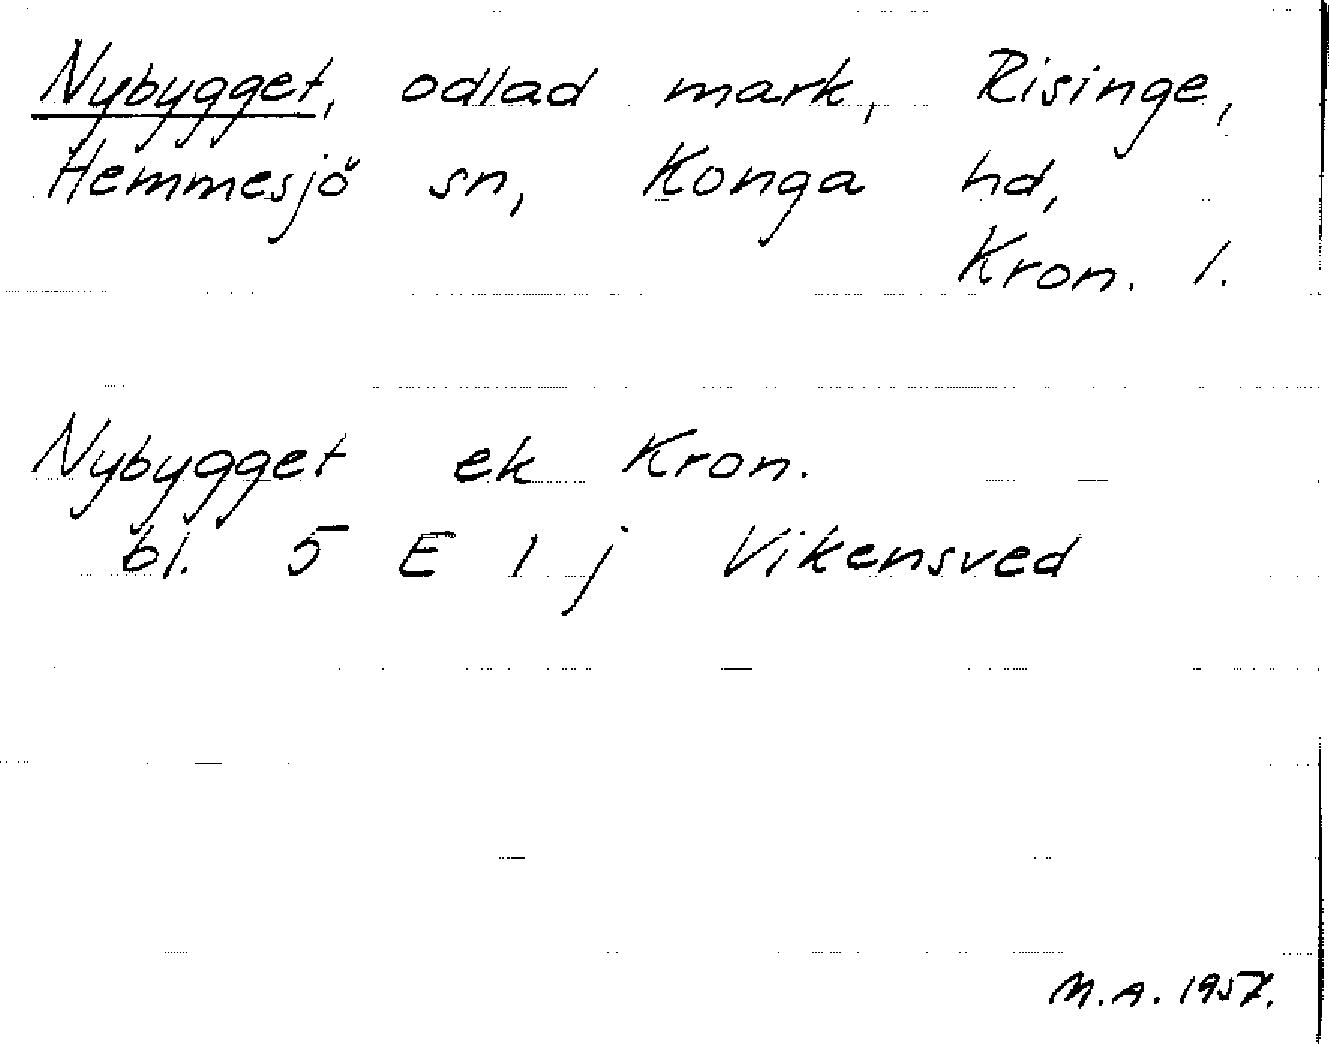 Nybygget, odlad mark, Risinge,
Hemmesjö sn, Konga hd,
Kron. l.
Nybygget ek Kron.
bl. 5 E 1 j Vikensved
M.A. 1957.